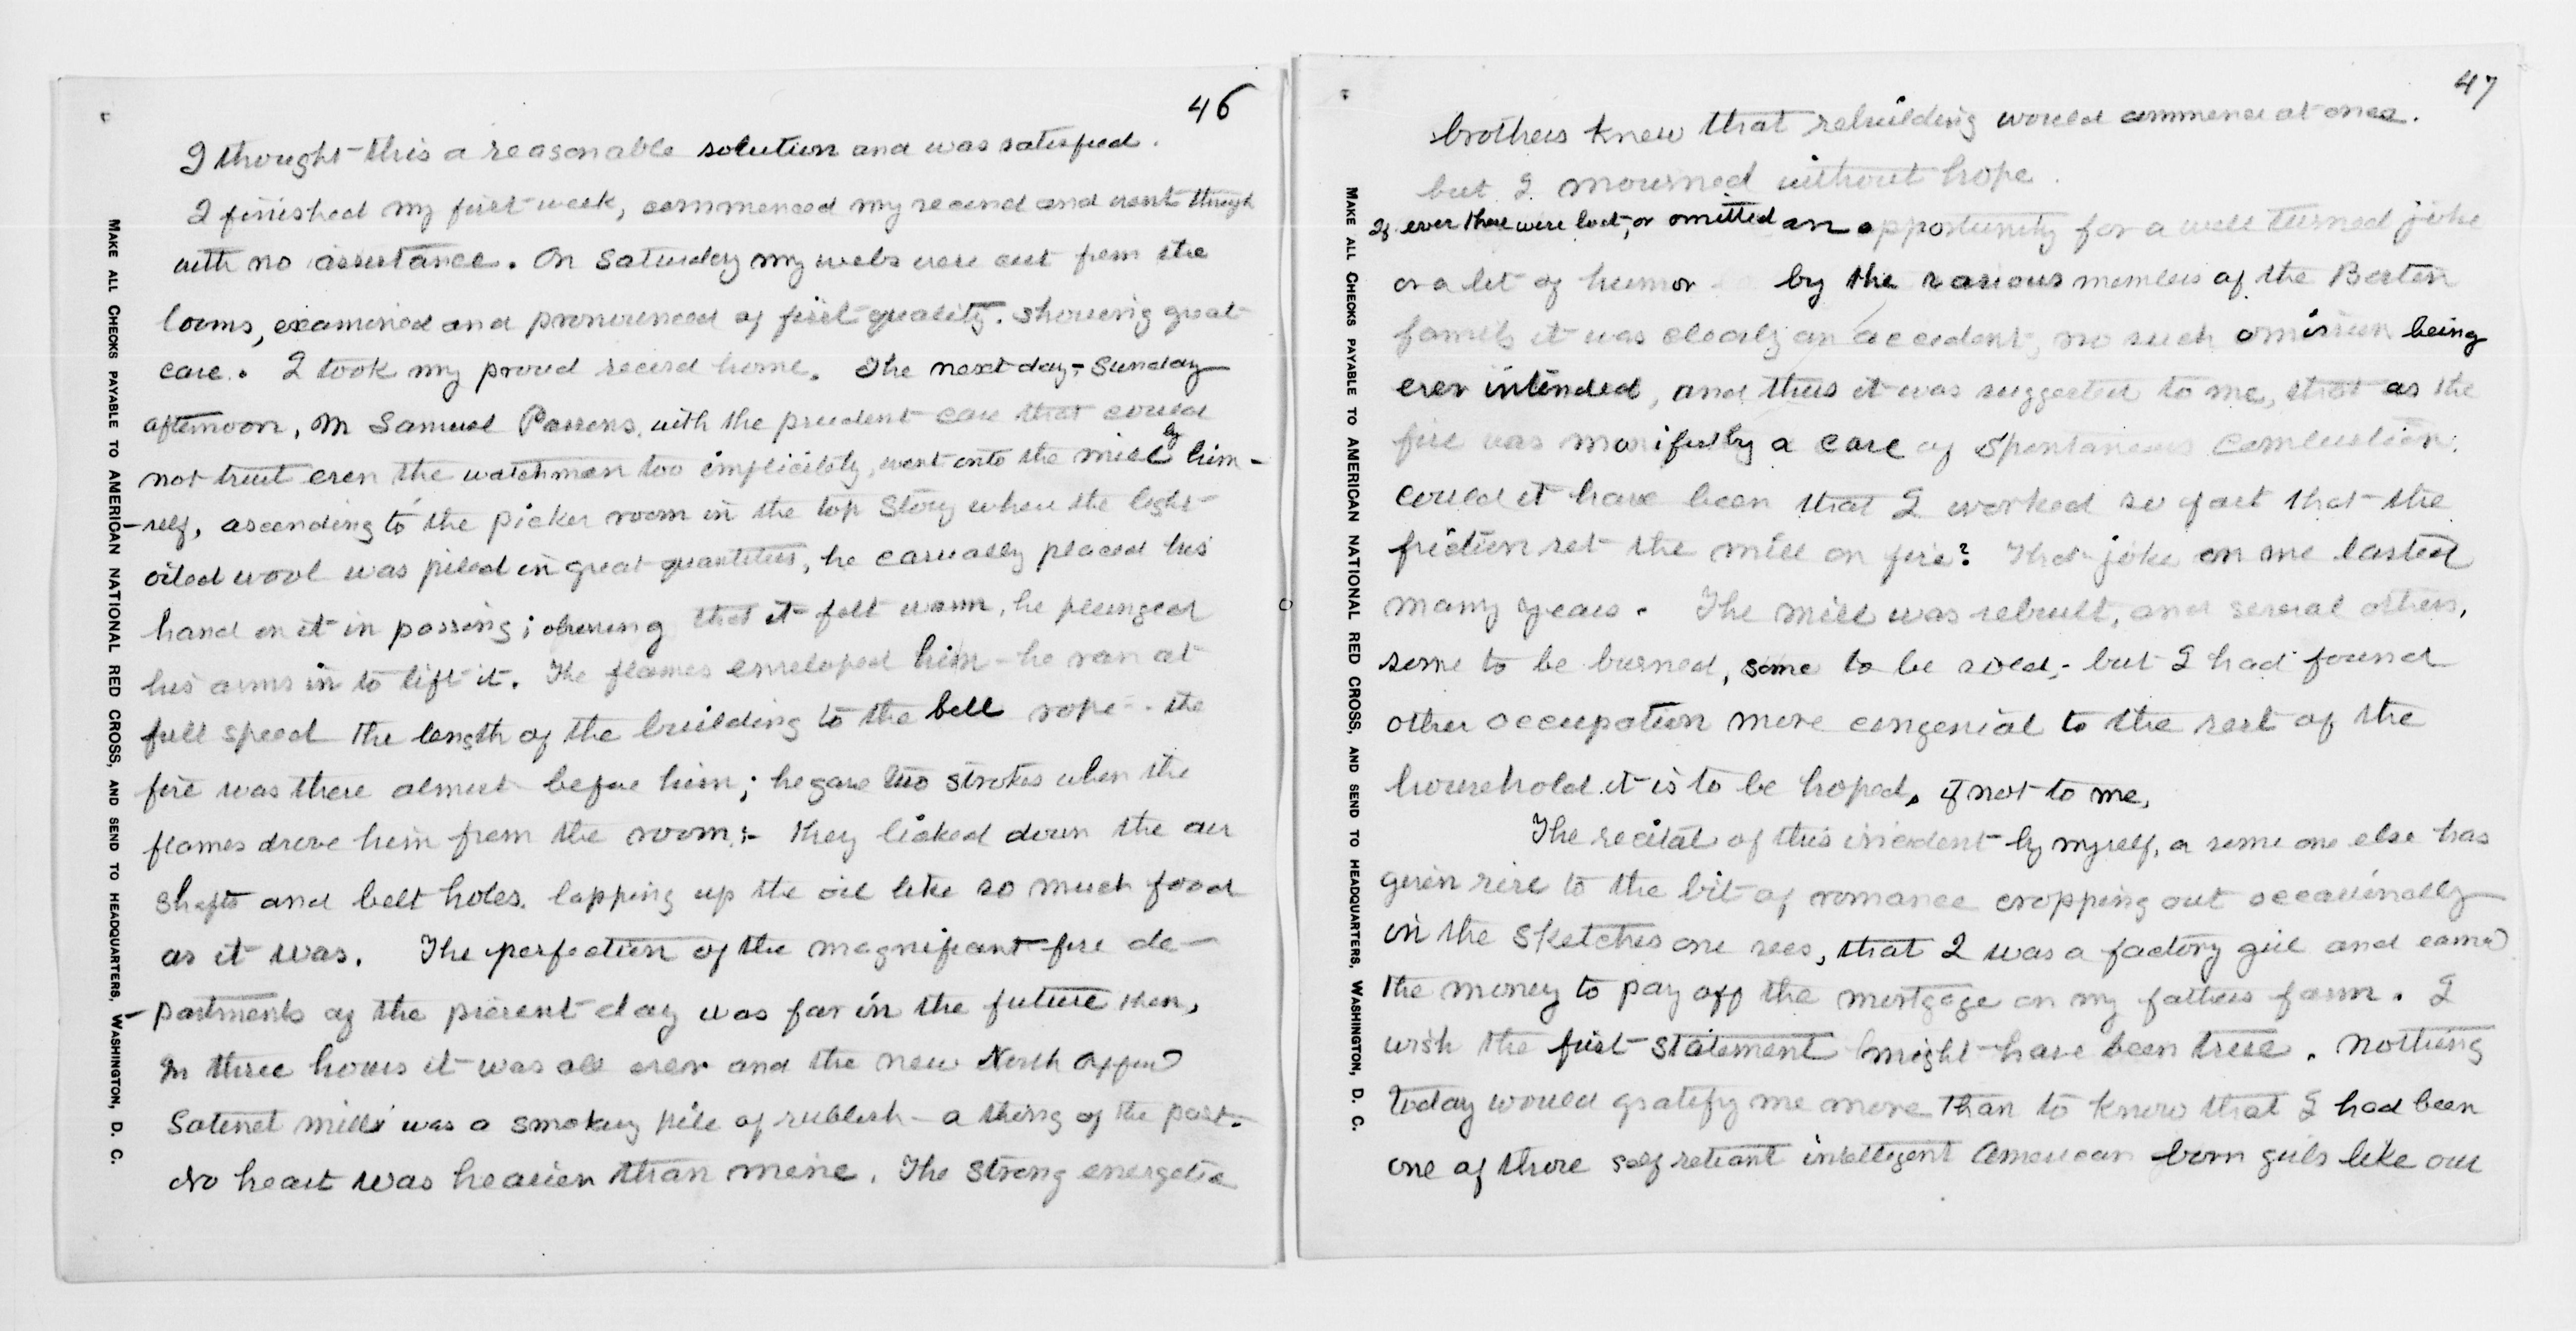 46
I thought this a reasonable solution and was satisfied.
I finished my first week, commenced my second and went through
with no assistance. On Saturday my webs were cut from the
looms, examined and pronounced of first quality. Showing great
care. I took my proud record home. The next day, Sunday
afternoon, Mr Samuel Parsons, with the prudent care that could
not trust even the watchman too implicitly, went into the mill by him-
-self, ascending to the picker room in the top Story where the light
oiled wool was piled in great quantities, he casually placed his
hand on it in passing; observing that it felt warm, he plunged
his arms in to lift it. The flames enveloped him - he ran at
full speed the length of the building to the bell rope - the
fire was there almost before him; he gave two strokes when the
flames drove him from the room; - they licked down the air
shafts and belt holes, lapping up the oil like so much food
as it was. The perfection of the magnificant fire de-
-partments of the present day was far in the future then,
In three hours it was all over and the new North Oxford
Satenet mills was a smoking pile of rubbish - a thing of the past.
No heart was heavier than mine. The strong energetic
MAKE ALL CHECKS PAYABLE TO AMERICAN NATIONAL RED CROSS, AND SEND TO HEADQUARTERS, WASHINGTON, D. C.
47
brothers knew that rebuilding would commence at once.
but I mourned without hope.
If ever there were lost, or omitted an opportunity for a well turned joke
or a bit of humor by the various members of the Barton
family it was clearly an accident, no such omission being
ever intended, and thus it was suggested to me, that as the
fire was manifestly a case of Spontaneous Combustion.
could it have been that I worked so fast that the
friction set the mill on fire? That joke on me lasted
many years. The mill was rebuilt, and several others,
some to be burned, some to be sold; but I had found
other occupation more congenial to the rest of the
household it is to be hoped, if not to me.
The recital of this incident by myself, or some one else has
given rise to the bit of romance cropping out occasionally
in the Sketches one sees, that I was a factory girl and earned
the money to pay off the mortgage on my fathers farm. I
wish the first statement might have been true. Nothing
today would gratify me more than to know that I had been
one of those self reliant intelligent American born girls like our
MAKE ALL CHECKS PAYABLE TO AMERICAN NATIONAL RED CROSS, AND SEND TO HEADQUARTERS, WASHINGTON, D. C.